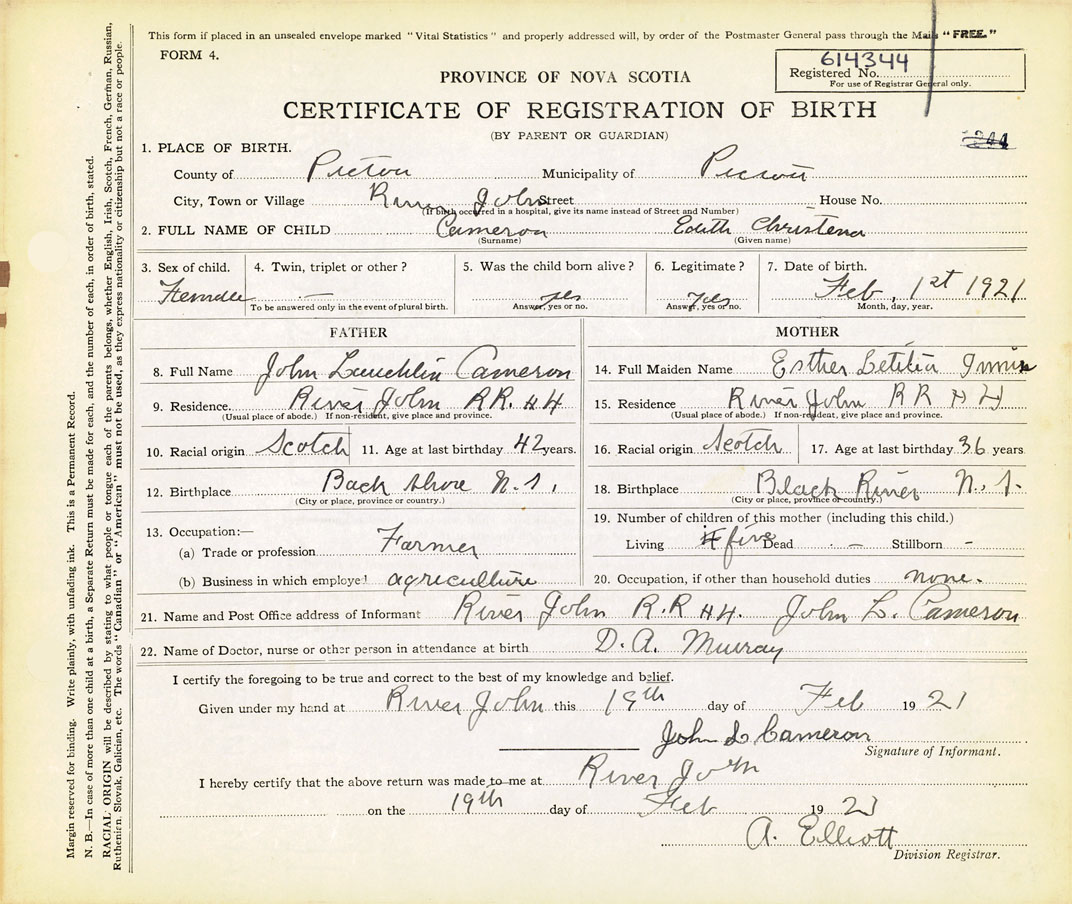 This form if placed in an unsealed envelope marked "Vital Statistics" and properly addressed will, by order of the Postmaster General pass through the Mails "FREE."
FORM 4.
614344
Registered No.
For use of Registrar General only.
PROVINCE OF NOVA SCOTIA
CERTIFICATE OF REGISTRATION OF BIRTH
(BY PARENT OR GUARDIAN)
1. PLACE OF BIRTH.
County of Pictou Municipality of Pictou
City, Town or Village River John Street House No.
(If birth occurred in a hospital, give its name instead of Street and Number)
2. FULL NAME OF CHILD Cameron Edith Christena
(Surname) (Given name)
3. Sex of child. 4. Twin, triplet or other? 5. Was the child born alive? 6. Legitimate? 7. Date of birth.
Female — yes yes Feb, 1st 1921
To be answered only in the event of plural birth. Answer, yes or no. Answer, yes or no. Month, day, year.
FATHER
8. Full Name John Lauchlin Cameron
9. Residence River John R.R. #4
(Usual place of abode.) If non-resident, give place and province.
10. Racial origin Scotch 11. Age at last birthday 42 years.
12. Birthplace Back Shore N.S.
(City or place, province or country.)
13. Occupation:—
(a) Trade or profession Farmer
(b) Business in which employed agriculture
MOTHER
14. Full Maiden Name Esther Letitia
15. Residence River John R R # 4
(Usual place of abode.) If non-resident, give place and province.
16. Racial origin Scotch 17. Age at last birthday 36 years.
18. Birthplace Black River N.S.
(City or place, province or country.)
19. Number of children of this mother (including this child.)
Living five Dead - Stillborn -
20. Occupation, if other than household duties none.
21. Name and Post Office address of Informant River John R.R #4. John L. Cameron
22. Name of Doctor, nurse or other person in attendance at birth D. A. Murray
I certify the foregoing to be true and correct to the best of my knowledge and belief.
Given under my hand at River John this 19th day of Feb 1921
John L Cameron
Signature of Informant.
I hereby certify that the above return was made to me at River John
on the 19th day of Feb 1921
A. Elliott
Division Registrar.
Margin reserved for binding. Write plainly, with unfading ink. This is a Permanent Record.
N. B.—In case of more than one child at a birth, a Separate Return must be made for each, and the number of each, in order of birth, stated.
RACIAL ORIGIN will be described by stating to what people or tongue each of the parents belongs, whether English, Irish, Scotch, French, German, Russian,
Ruthenian, Slovak, Galician, etc. The words "Canadian" or "American" must not be used, as they express nationality or citizenship but not a race or people.